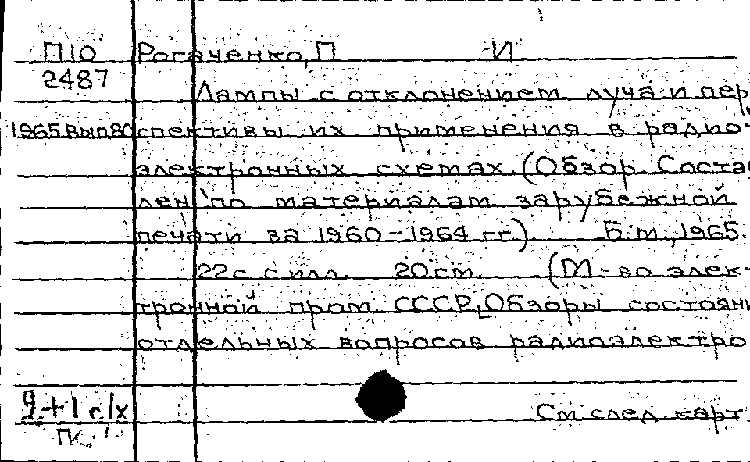 П10 Рогаченко, П И
2487
Лампы с отклонением луча и пер
1965 вып80 спективы их применения в радио-
электронных схемах. (Обзор. Соста
лен по материалам зарубежной
печати за 1960-1964 гг.) Б.м., 1965.
22 с. с илл. 20 см. (М-во элек-
тронной пром. СССР. Обзоры состояни
отдельных вопросов радиоэлектро
См. след. карт